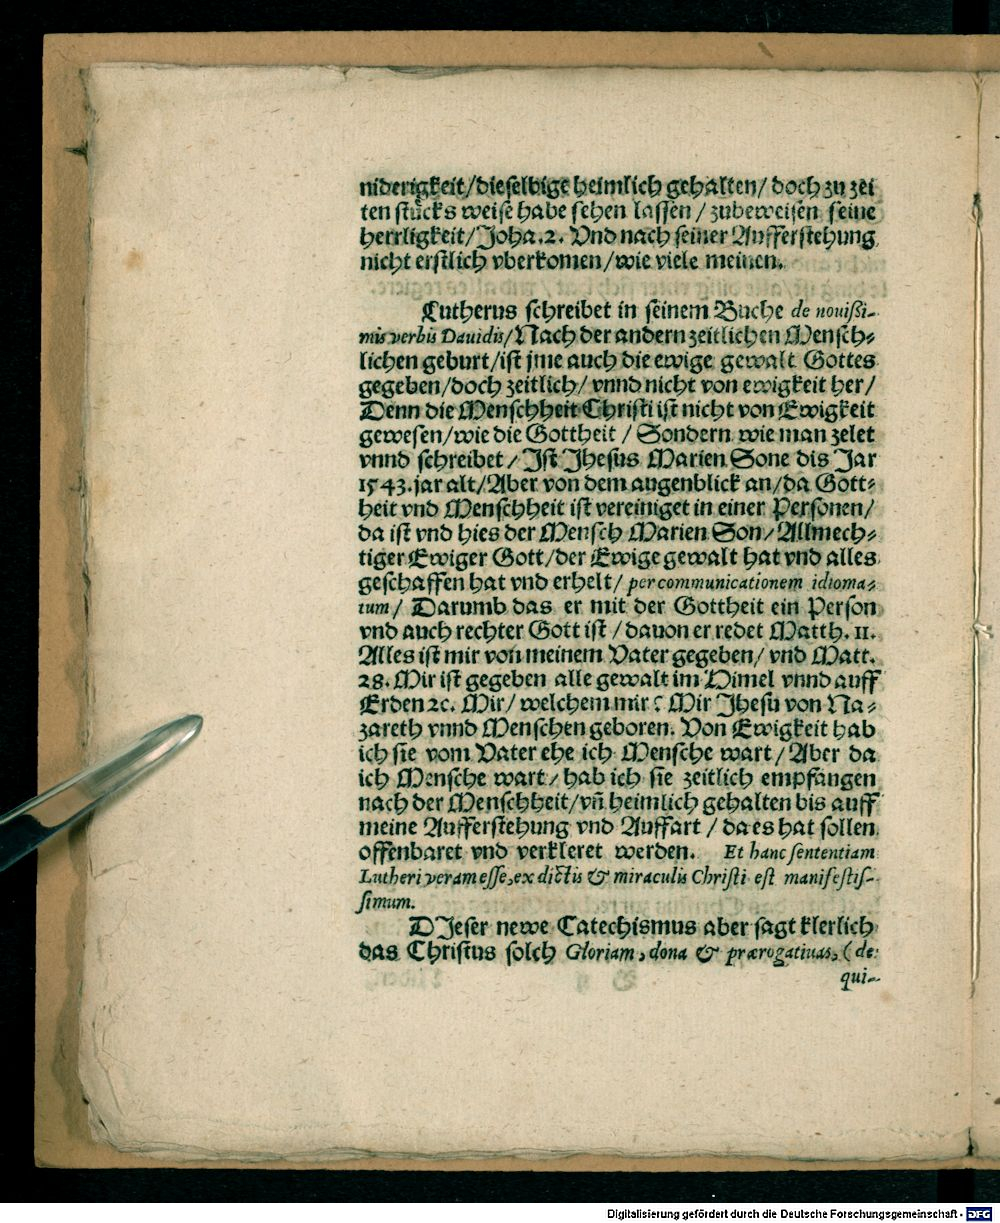 niderigkeit/dieselbige heimlich gehalten/ doch zu zei
ten stuͤcks weise habe sehen lassen / zubeweisen seine
herrligkeit/Joha.2. Vnd nach seiner Aufferstehung
nicht erstlich vberkomen/wie viele meinen.
Lutherus schreibet in seinem Buche de nouißi-
mis verbis Dauidis/Nach der andern zeitlichen Mensch-
lichen geburt/ist jme auch die ewige gewalt Gottes
gegeben/doch zeitlich/ vnnd nicht von ewigkeit her/
Denn die Menschheit Christi ist nicht von Ewigkeit
gewesen/wie die Gottheit / Sondern wie man zelet
vnnd schreibet / Ist Jhesus Marien Sone dis Jar
1543.jar alt/Aber von dem augenblick an/da Gott-
heit vnd Menschheit ist vereiniget in einer Personen/
da ist vnd hies der Mensch Marien Son/Allmech-
tiger Ewiger Gott/der Ewige gewalt hat vnd alles
geschaffen hat vnd erhelt/ per communicationem idioma-
tum/ Darumb das er mit der Gottheit ein Person
vnd auch rechter Gott ist / dauon er redet Matth. 11.
Alles ist mir von meinem Vater gegeben/ vnd Matt.
28. Mir ist gegeben alle gewalt im Himel vnnd auff
Erden ꝛc. Mir/ welchem mir? Mir Jhesu von Na-
zareth vnnd Menschen geboren. Von Ewigkeit hab
ich sie vom Vater ehe ich Mensche wart/Aber da
ich Mensche wart/hab ich sie zeitlich empfangen
nach der Menschheit/vn̄ heimlich gehalten bis auff
meine Aufferstehung vnd Auffart / da es hat sollen
offenbaret vnd verkleret werden. Et hanc sententiam
Lutheri veram esse, ex dictis & miraculis Christi est manifestis-
simum.
DJeser newe Catechismus aber sagt klerlich
das Christus solch Gloriam, dona & prærogatiuas, (de
qui-
Digitalisierung gefördert durch die Deutsche Forschungsgemeinschaft - DFG